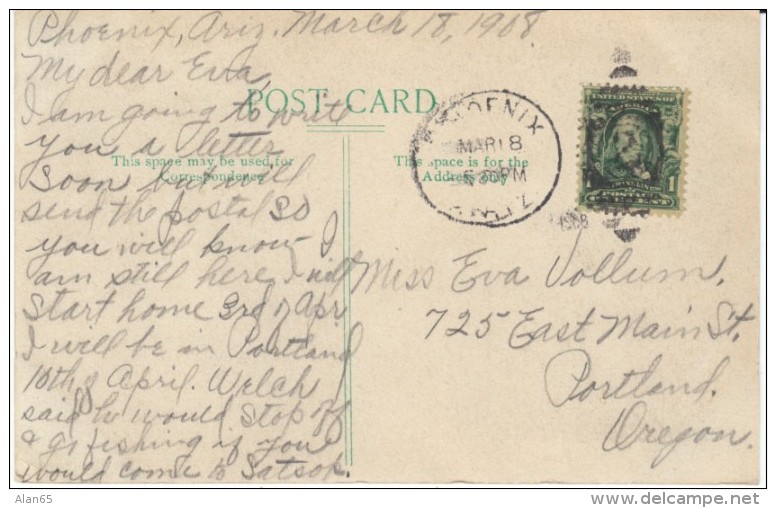 Phoenix, Ariz. March 18, 1908
My dear Eva,
I am going to write
you a letter
soon but will
send the postal so
you will know I
am still here. I will
start home 3rd of Apr
I will be in Portland
10th of April. Welch
said he would stop off
& go fishing if you
would come to Satsop.
POST CARD
This space may be used for
Correspondence
This space is for the
Address only
PHOENIX
MAR 18
PM
ARIZ.
1908
UNITED STATES OF
AMERICA
FRANKLIN
1 1
POSTAGE
ONE CENT
Miss Eva Vollum.
725 East Main St.
Portland.
Oregon.
Alan65
delcampe.net